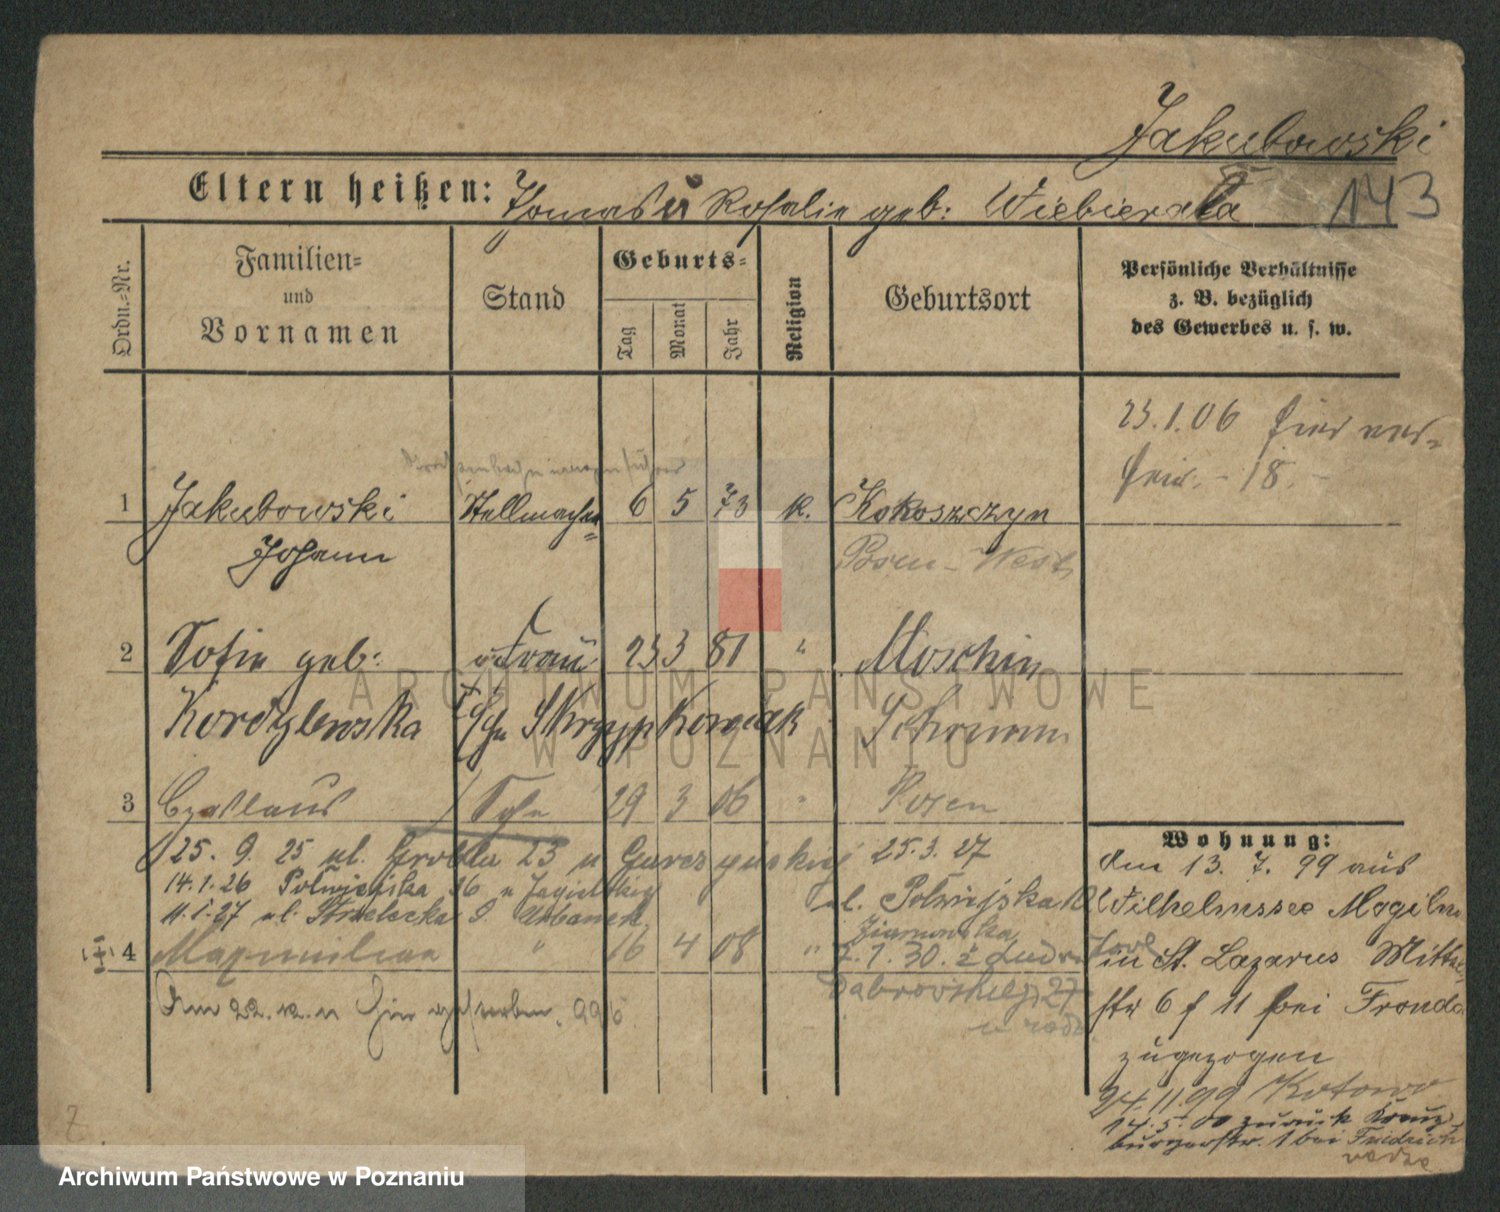 Jakubowski
Eltern heißen: Thomas u Rosalie geb: Wiebierala
143
Ordn.-Nr.
Familien-
und
Vornamen
Stand
Geburts-
Tag
Monat
Jahr
Religion
Geburtsort
Persönliche Verhältnisse
z. B. bezüglich
des Gewerbes u. s. w.
23.1.06 hier ver-
heir. - 18. -
1 Jakubowski Stellmacher 6 5 73 k. Kokoszczyn
Johann Posen-West
2 Sofie geb: Frau 23 3 81 " Moschin
Kordylewska Skrzypkowiak Schrimm
3 Czeslaus Sohn 29 3 06 " Posen
25. 9. 25 ul. Grobla 23 u 25.3.27
14.1.26 Półwiejska 16 u ul. Półwiejska
11.1.27 ul. Strzelecka 9. Urbanek
4 Maximilian " 16 4 08 " 2.1.30. z
Dąbrowskiego 27
Am 22.12. hier gestorben.
Wohnung:
Am 13. 7. 99 aus
Wilhelmssee Mogilno
in St. Lazarus Mittel
str 6 f 11 bei
zugezogen
24.11.99 Kotowo
14.5.00 zurück Kreuz-
burgerstr. 1 bei Friedrich
ARCHIWUM PAŃSTWOWE
W POZNANIU
Archiwum Państwowe w Poznaniu